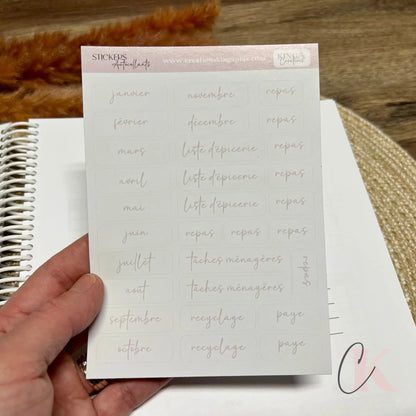 STICKERS
Autocollants
janvier novembre repas
février décembre repas
mars liste d'épicerie repas
avril liste d'épicerie repas
mai liste d'épicerie repas
juin repas repas repas
juillet tâches ménagères repas
août tâches ménagères
septembre recyclage paye
octobre recyclage paye
CK